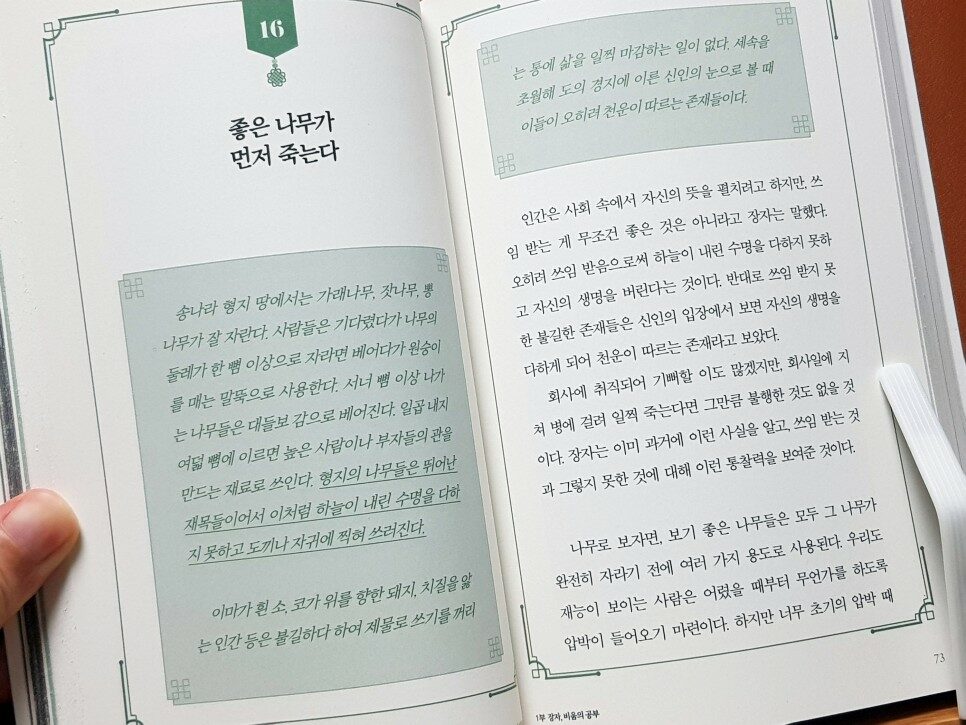 16
좋은 나무가
먼저 죽는다
송나라 형지 땅에서는 가래나무, 잣나무, 뽕
나무가 잘 자란다. 사람들은 기다렸다가 나무의
둘레가 한 뼘 이상으로 자라면 베어다가 원숭이
를 매는 말뚝으로 사용한다. 서너 뼘 이상 나가
는 나무들은 대들보 감으로 베어진다. 일곱 내지
여덟 뼘에 이르면 높은 사람이나 부자들의 관을
만드는 재료로 쓰인다. 형지의 나무들은 뛰어난
재목들이어서 이처럼 하늘이 내린 수명을 다하
지 못하고 도끼나 자귀에 찍혀 쓰러진다.
이마가 흰 소, 코가 위를 향한 돼지, 치질을 앓
는 인간 등은 불길하다 하여 제물로 쓰기를 꺼리
는 통에 삶을 일찍 마감하는 일이 없다. 세속을
초월해 도의 경지에 이른 신인의 눈으로 볼 때
이들이 오히려 천운이 따르는 존재들이다.
인간은 사회 속에서 자신의 뜻을 펼치려고 하지만, 쓰
임 받는 게 무조건 좋은 것은 아니라고 장자는 말했다.
오히려 쓰임 받음으로써 하늘이 내린 수명을 다하지 못하
고 자신의 생명을 버린다는 것이다. 반대로 쓰임 받지 못
한 불길한 존재들은 신인의 입장에서 보면 자신의 생명을
다하게 되어 천운이 따르는 존재라고 보았다.
회사에 취직되어 기뻐할 이도 많겠지만, 회사일에 지
쳐 병에 걸려 일찍 죽는다면 그만큼 불행한 것도 없을 것
이다. 장자는 이미 과거에 이런 사실을 알고, 쓰임 받는 것
과 그렇지 못한 것에 대해 이런 통찰력을 보여준 것이다.
나무로 보자면, 보기 좋은 나무들은 모두 그 나무가
완전히 자라기 전에 여러 가지 용도로 사용된다. 우리도
재능이 보이는 사람은 어렸을 때부터 무언가를 하도록
압박이 들어오기 마련이다. 하지만 너무 초기의 압박 때
1부 장자, 비움의 공부
73